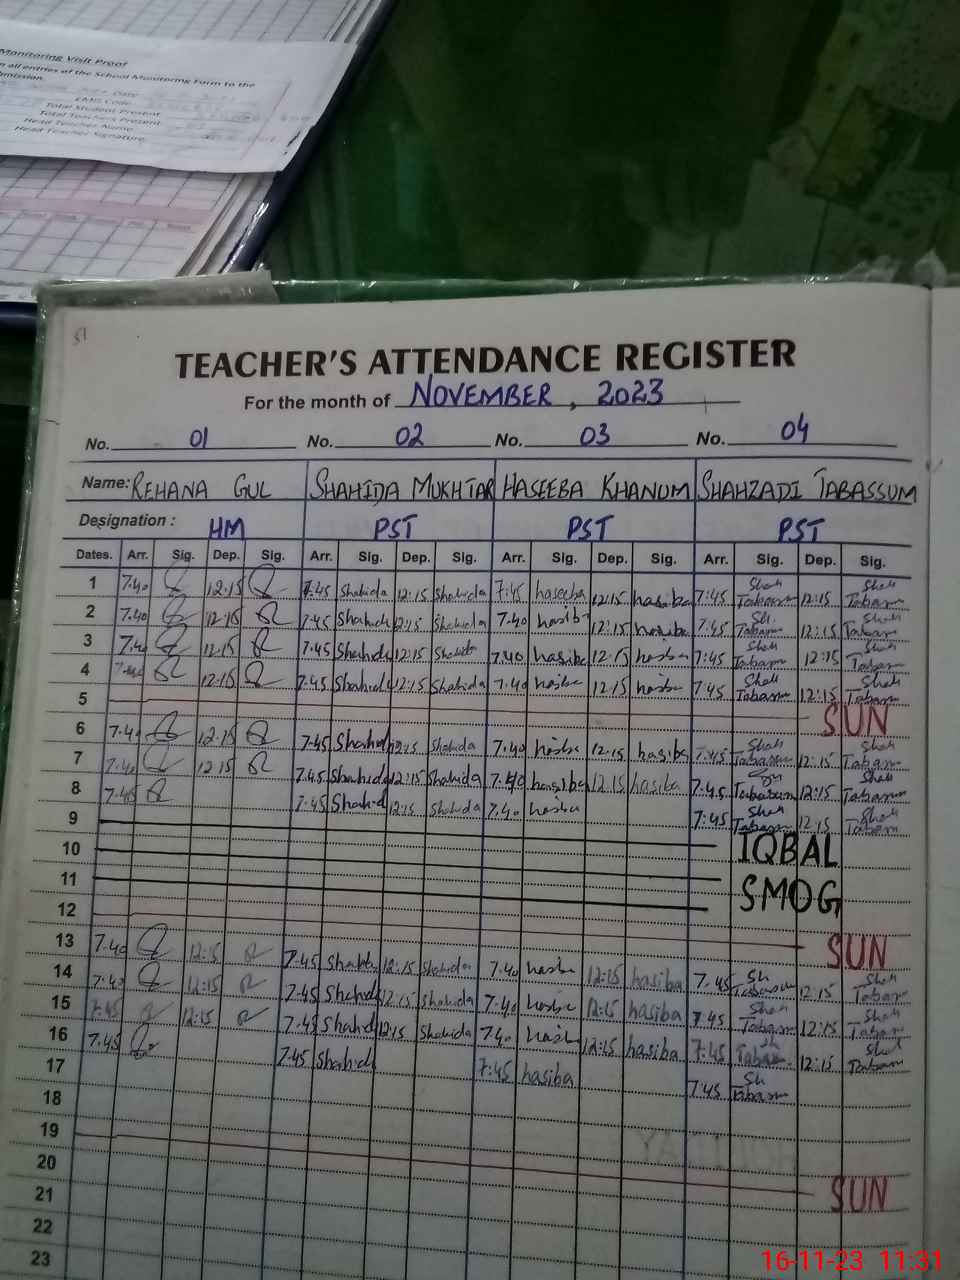 Monitoring Visit Proof
all entries of the School Monitoring Form to the
Date
EMIS Code
Total Student Present
Total Teachers Present
Head Teacher Name
Head Teacher Signature
51
TEACHER'S ATTENDANCE REGISTER
For the month of NOVEMBER, 2023
No. 01 No. 02 No. 03 No. 04
Name: REHANA GUL SHAHIDA MUKHTAR HASEEBA KHANUM SHAHZADI TABASSUM
Designation : HM PST PST PST
Dates. Arr. Sig. Dep. Sig. Arr. Sig. Dep. Sig. Arr. Sig. Dep. Sig. Arr. Sig. Dep. Sig.
1 7.40 12:15 7.45 Shahida 12:15 Shahida 7:45 haseeba 12:15 hasiba 7:45 12:15
2 7.40 12:15 7.45 Shahida 12:15 Shahida 7.40 hasiba 12:15 hasiba 7:45 12:15
3 7.40 12.15 7.45 Shahida 12:15 Shahida 7.40 hasiba 12.15 hasiba 7:45 12:15
4 7.40 12.15 7.45 Shahida 12:15 Shahida 7.40 hasiba 12.15 hasiba 7:45 12:15
5 SUN
6 7.40 12.15 7.45 Shahida 12:15 Shahida 7.40 hasiba 12.15 hasiba 7:45 12:15
7 7.40 12.15 7.45 Shahida 12:15 Shahida 7.40 hasiba 12.15 hasiba 7.45 12:15
8 7.45 7.45 Shahida 12:15 Shahida 7.40 hasiba 7:45 12:15
9 IQBAL
10
11 SMOG
12 SUN
13 7.40 12:15 7.45 Shahida 12:15 Shahida 7.40 hasiba 12:15 hasiba 7.45 12:15
14 7.40 12:15 7.45 Shahida 12:15 Shahida 7.40 hasiba 12:15 hasiba 7.45 12:15
15 7:45 12:15 7.45 Shahida 12:15 Shahida 7.40 hasiba 12:15 hasiba 7:45 12:15
16 7.45 7.45 Shahida 7:45 hasiba 7:45
17
18
19 SUN
20
21
22
23
16-11-23 11:31